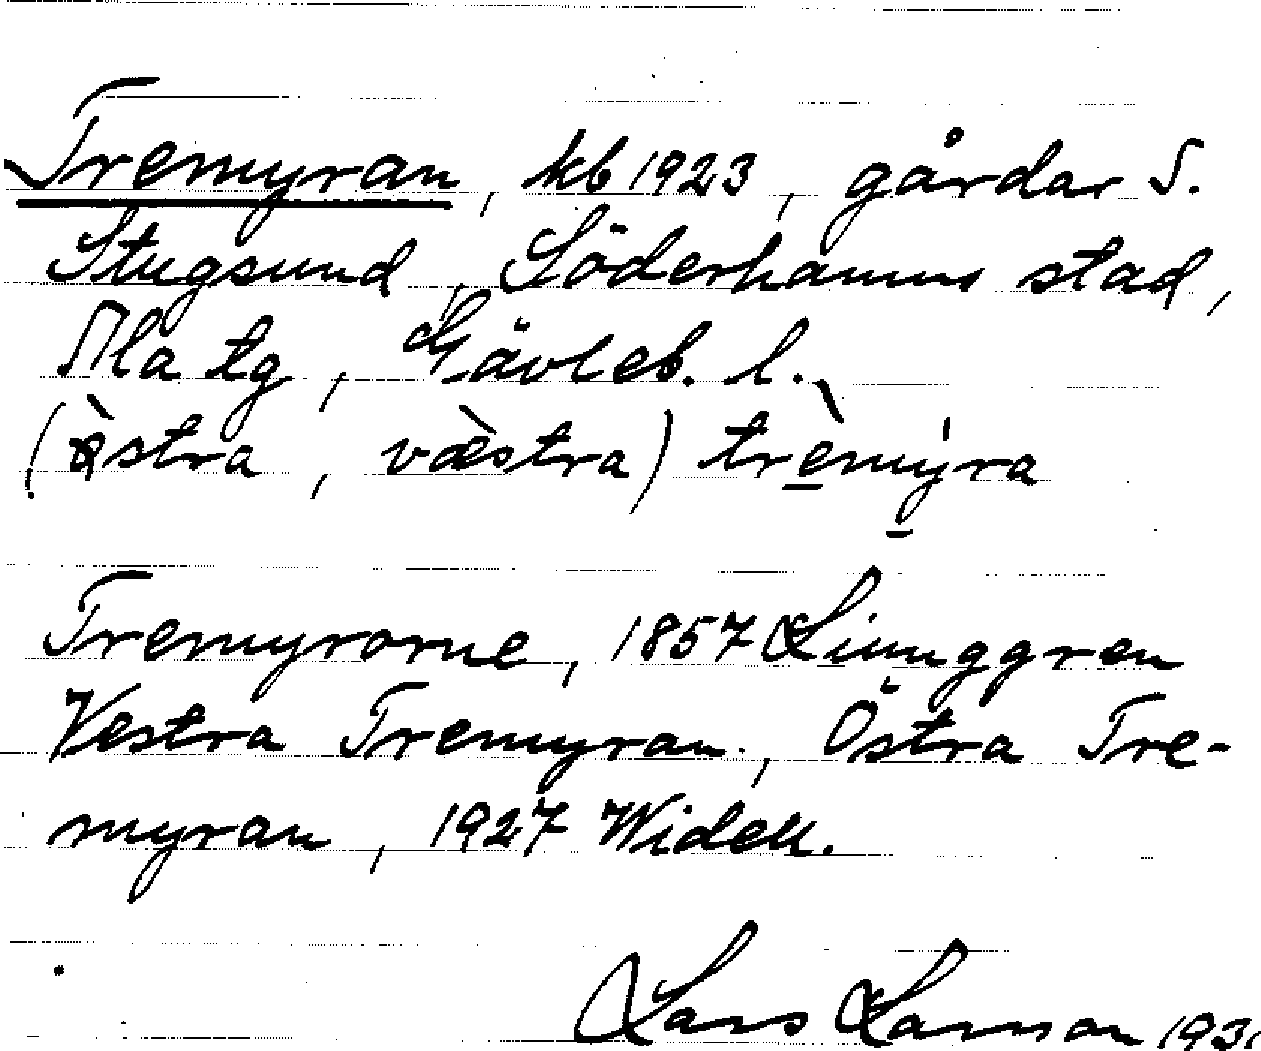 Tremyran, kb 1923, gårdar S.
Stugsund, Söderhamns stad,
Ala tg, Gävleb. l.
(östra, væ̀stra) trèmýra
Tremyrorne, 1857 Ljunggren
Vestra Tremyran, Östra Tre-
myran, 1927 Widell.
Lars Larson